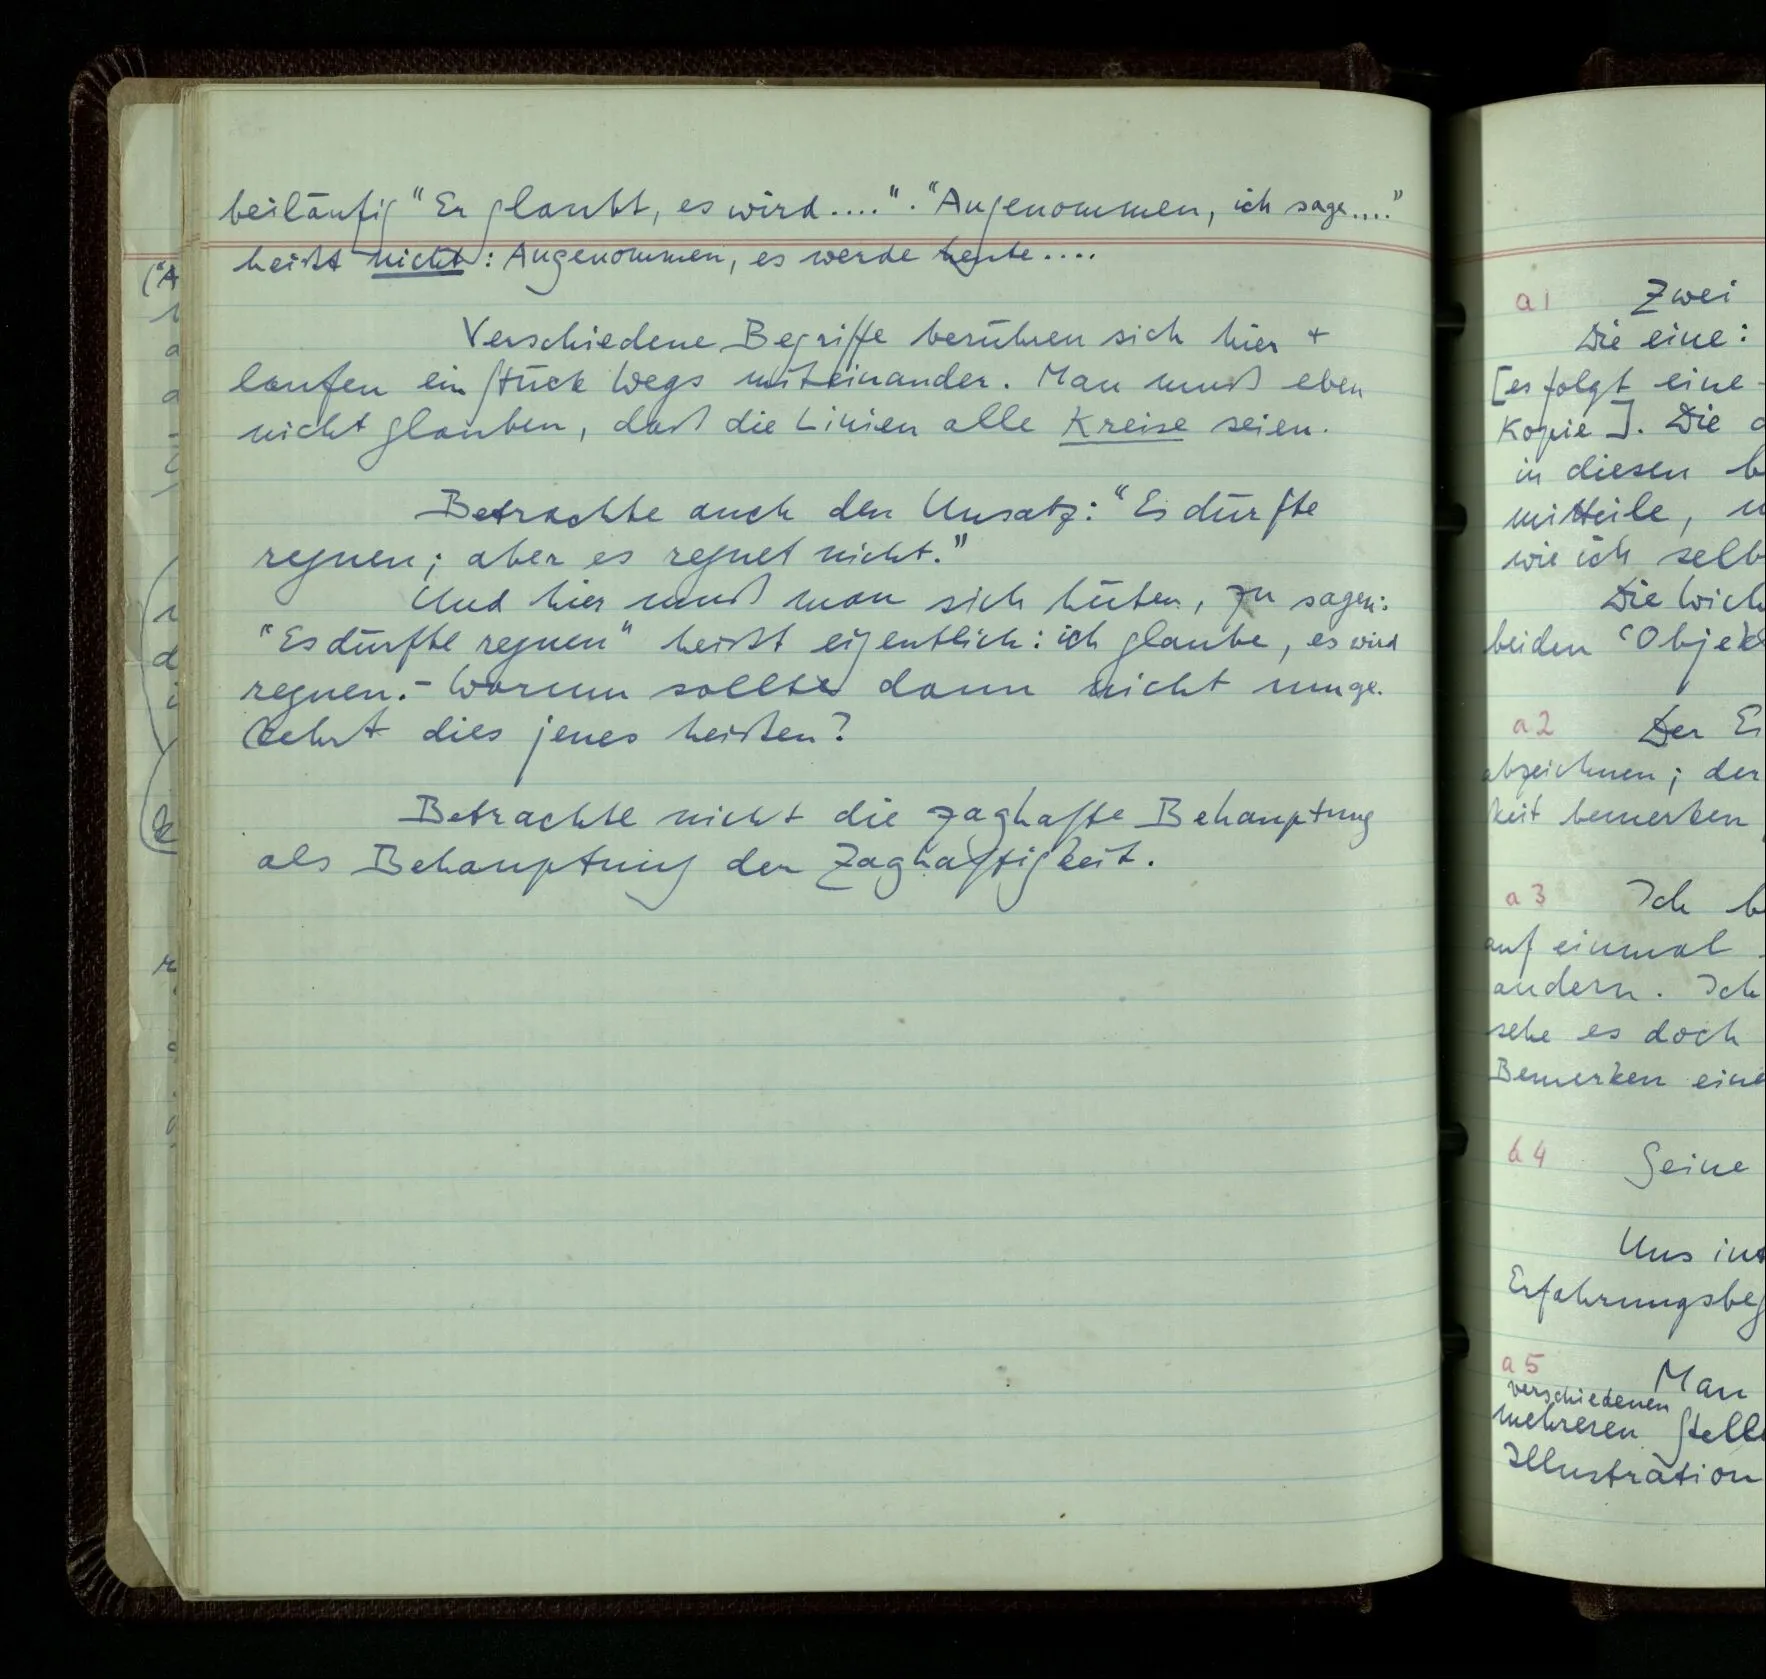 beiläufig "Er glaubt, es wird....". "Angenommen, ich sage...."
heißt nicht: Angenommen, es werde heute....
Verschiedene Begriffe berühren sich hier +
laufen ein Stück Wegs miteinander. Man muß eben
nicht glauben, daß die Linien alle Kreise seien.
Betrachte auch den Unsatz: "Es dürfte
regnen; aber es regnet nicht."
Und hier muß man sich hüten, zu sagen:
"Es dürfte regnen" heißt eigentlich: ich glaube, es wird
regnen. – Warum sollte dann nicht umge-
kehrt dies jenes heißen?
Betrachte nicht die zaghafte Behauptung
als Behauptung der Zaghaftigkeit.
a1 Zwei
Die eine:
[es folgt eine
Kopie]. Die
in diesen
mitteile,
wie ich selb
Die Wich
beiden 'Objek
a2 Der
abzeichnen; der
keit bemerken
a3 Ich
auf einmal
andern. Ich
sehe es doch
Bemerken eine
a4 Seine
Uns int
Erfahrungsbeg
a5 Man
verschiedenen
mehreren Stelle
Illustration